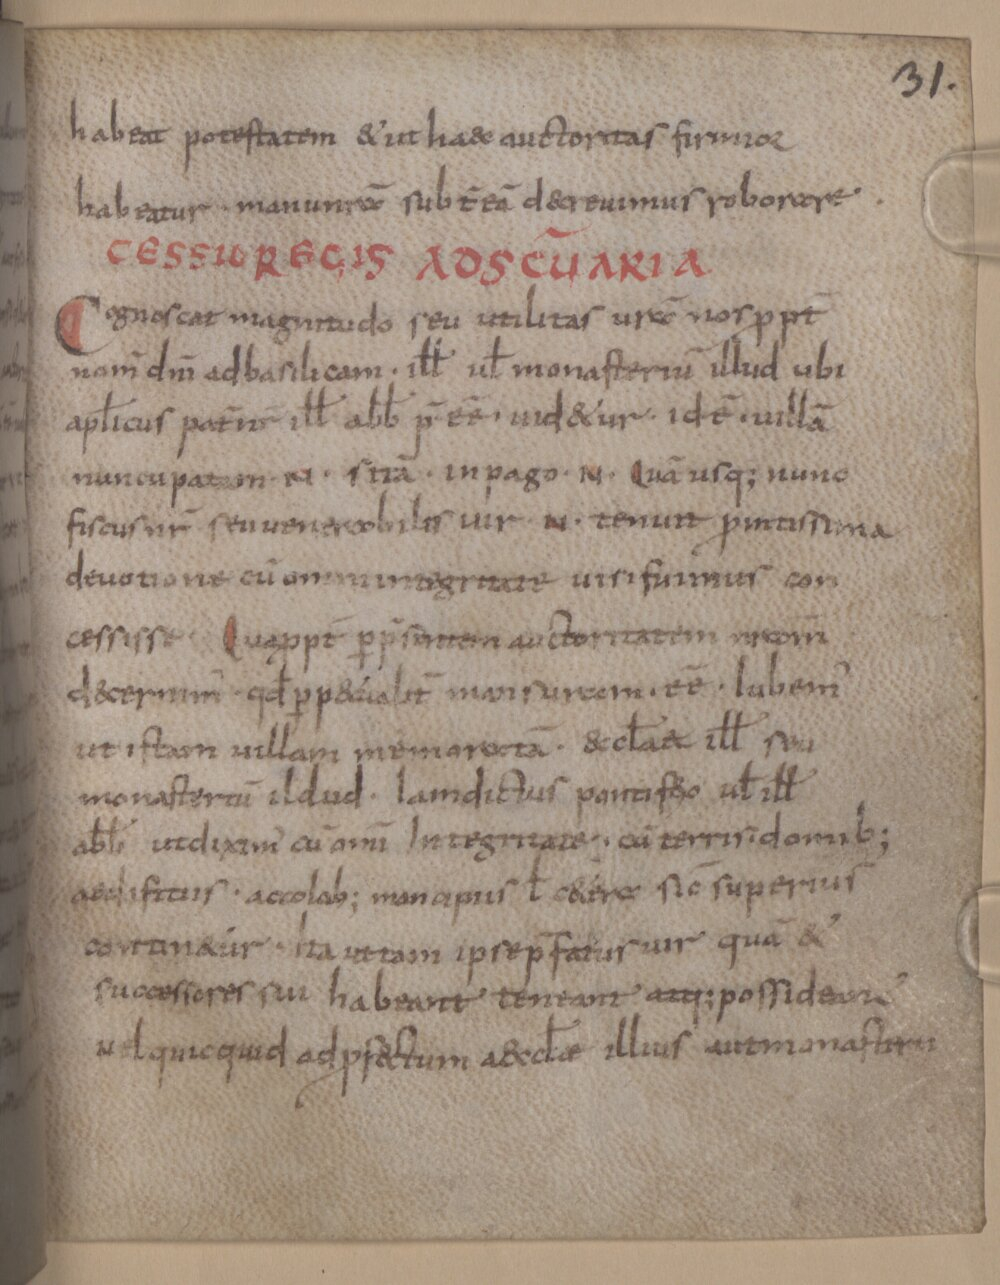 31.
habeat potestatem & ut haec auctoritas firmior
habetur · manu nr̄ae subt̄ eā decreuimus roborare ·
CESSIO REGIS AD SC̄UARIA
Cognoscat magnitudo seu utilitas ur̄a nos ꝓpt̄
nom̄ dn̄i ad basilicam · ill̄ ul̄ monasteriū illud ubi
apl̄icus pat̄ nr̄ ill̄ abb̄ p̄ ēē · uidetur · id ē̄ · uillā
nuncupatam · N · sitā · in pago · N · Quā usq; nunc
fiscus nr̄ seu uenerabilis uir · N · tenuit promtissima
deuotione cū omni integritate uisi fuimus con
cessisse · Quappt̄ ꝑ p̄sentem auctoritatem nr̄am
decernim' · qd̄ ꝑpetualit̄ mansuram · ēē · Iubem'
ut istam uillam memoratā · aecl̄ae ill̄ seu
monasteriū illud · Iamdictus pontifex ul̄ ill̄
abb̄ ut dixim' cū om̄i Integritate · cū terris · domib;
aedifitiis · accolab; mancipiis l̄ cetera sic̄ superius
continetur · Ita ut tam ipse p̄fatus uir quā &
successores sui habeant teneant atq; possideant
uel quicquid ad ꝓfectum aeccl̄ae illius aut monasterii